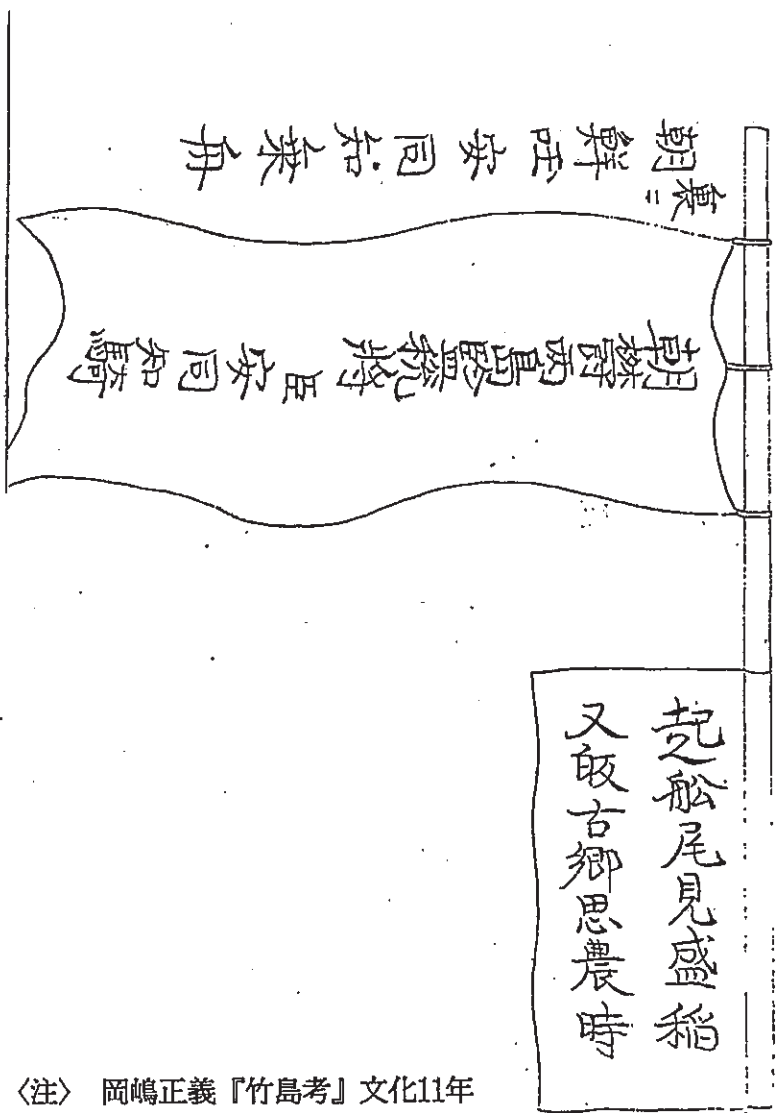 裏ニ
朝鮮国安同知乗舟
朝欝両島監税将臣安同知騎
起舩尾見盛稲
又皈古郷思農時
〈注〉 岡嶋正義『竹島考』文化11年